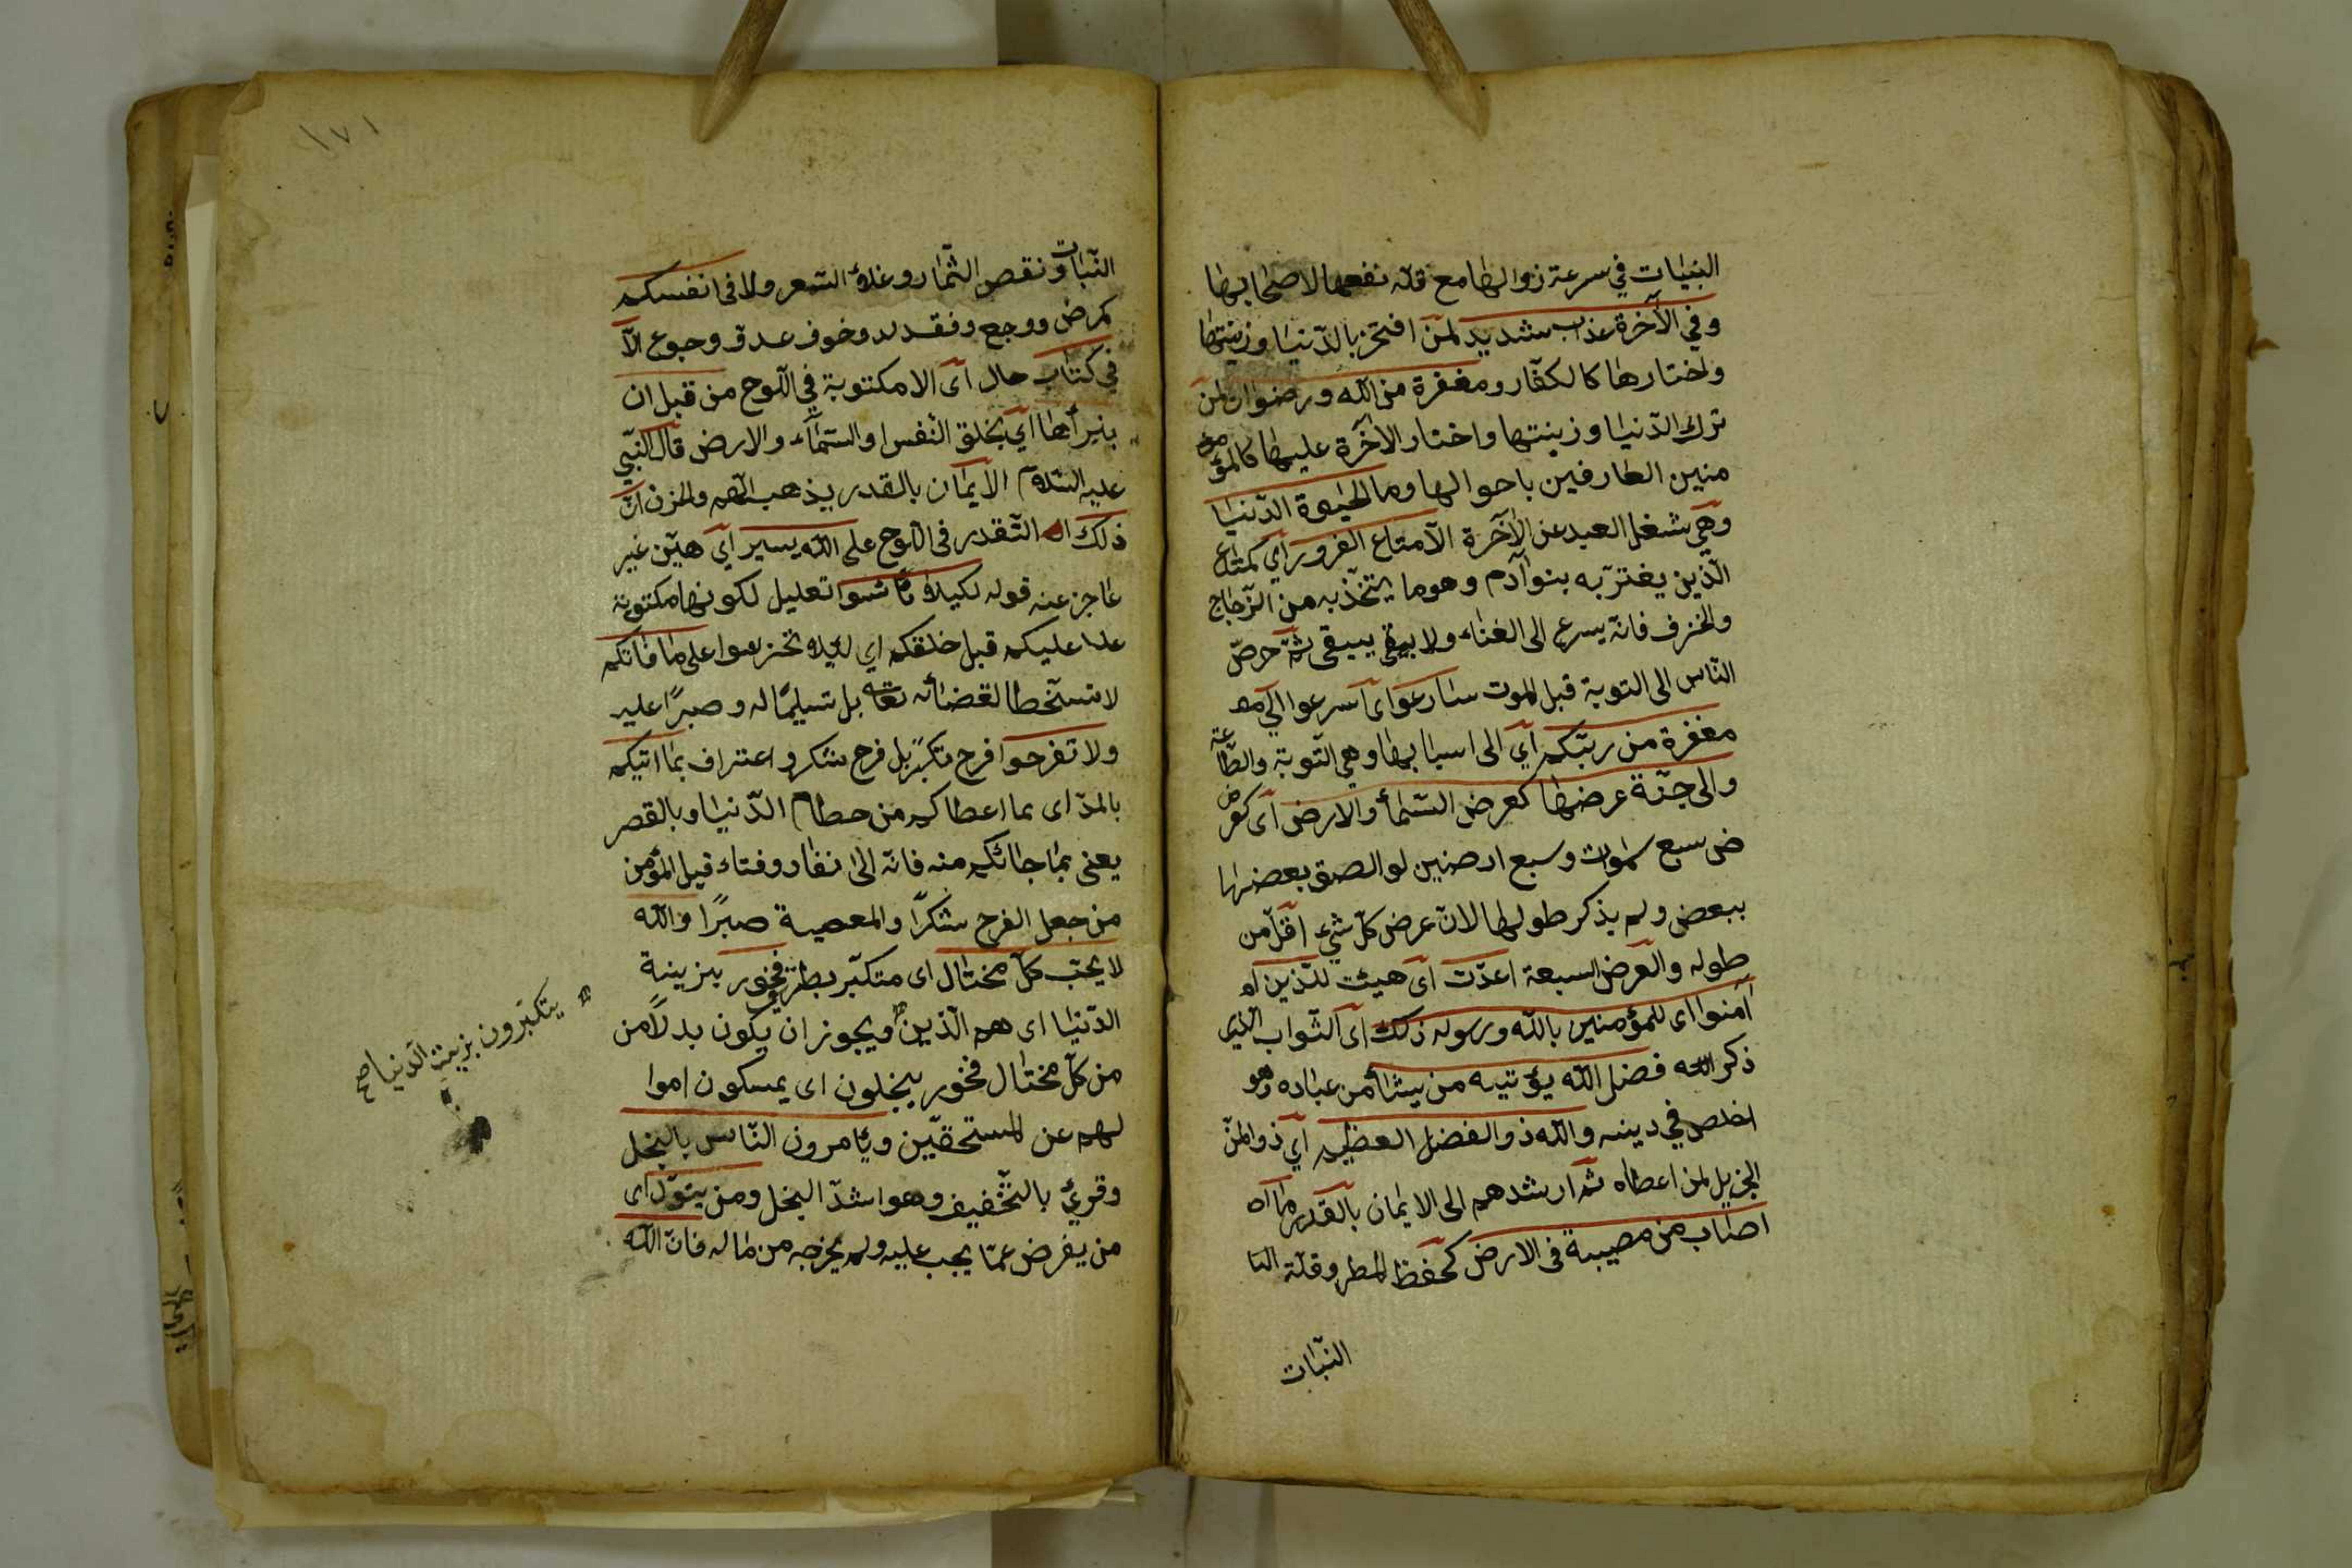 النبات في سرعة زوالها مع قلة نفعها لاصحابها
وفي الآخرة عذاب شديد لمن افتخر بالدّنيا وزينتها
واختارها كالكفّار ومغفرة من الله ورضوان لمن
ترك الدّنيا وزينتها واختار الآخرة عليها كالمؤ
منين العارفين باحوالها وما الحيوة الدّنيا
وهي شغل العبد عن الآخرة الا متاع الغرور اي كمتاع
الّذين يغترّ به بنو آدم وهو ما يتّخذ به من الزّجاج
والخزف فانّه يسرع الى الفناء ولا يبقى ثمّ حرصّ
النّاس الى التوبة قبل الموت سارعوا اى اسرعوا الى
مغفرة من ربّكم اي الى اسبابها وهي التّوبة والطّاعة
والى جنّة عرضها كعرض السّماء والارض اى كعر
ض سبع سموات وسبع ارضين لو الصق بعضها
ببعض ولم يذكر طولها لانّ عرض كلّ شئ اقلّ من
طوله والعرض السبعة اعدّت اى هيئت للّذين
آمنوا اى للمؤمنين بالله ورسوله ذلك اى الثّواب الذي
ذكر الله فضل الله يؤتيه من يشاء من عباده وهو
اخلص في دينه والله ذو الفضل العظيم اي ذو المنّ
الجزيل لمن اعطاه ثم ارشدهم الى الايمان بالقدر ما
اصاب من مصيبة فى الارض كحفظ المطر وقلّة النا
النّبات
١٧١
النّبات ونقص الثّمار وغلاء السّعر ولا فى انفسكم
كمرض ووجع وفقد ولد وخوف عدوّ وجوع الّا
في كتاب حال اى الا مكتوبة في اللّوح من قبل ان
نبرأها اي نخلق النّفس او السّماء والارض قال النّبي
عليه السّلام الايمان بالقدر يذهب الهمّ والحزن انّ
ذلك التّقدير فى اللوح على الله يسير اي هيّن غير
عاجز عنه قوله لكيلا تأسوا تعليل لكونها مكتوبة
علا عليكم قبل خلقكم اي لئلا تحزنوا على ما فاتكم
لا تسخّطا لقضائه تعالى بل تسليمًا له وصبرًا عليه
ولا تفرحوا فرح تكبّر بل فرح شكر واعتراف بما اتيكم
بالمدّ اى بما اعطاكم من حطام الدّنيا وبالقصر
يعنى بما جائكم منه فانّه الى نفاد وفناء قيل المؤمن
من جعل الفرح شكرًا والمعصية صبرًا والله
لا يحبّ كلّ مختال اى متكبّر بطر فخور بزينة
الدّنيا اى هم الّذين ويجوز ان يكون بدلًا من
من كلّ مختال فخور يبخلون اى يمسكون اموا
لهم عن المستحقّين ويأمرون النّاس بالبخل
وقرئ بالتّخفيف وهو اشدّ البخل ومن يتولّ اى
من يعرض عمّا يجب عليه ولم يخرجه من ماله فانّ الله
يتكبّرون بزينة الدّنيا صح